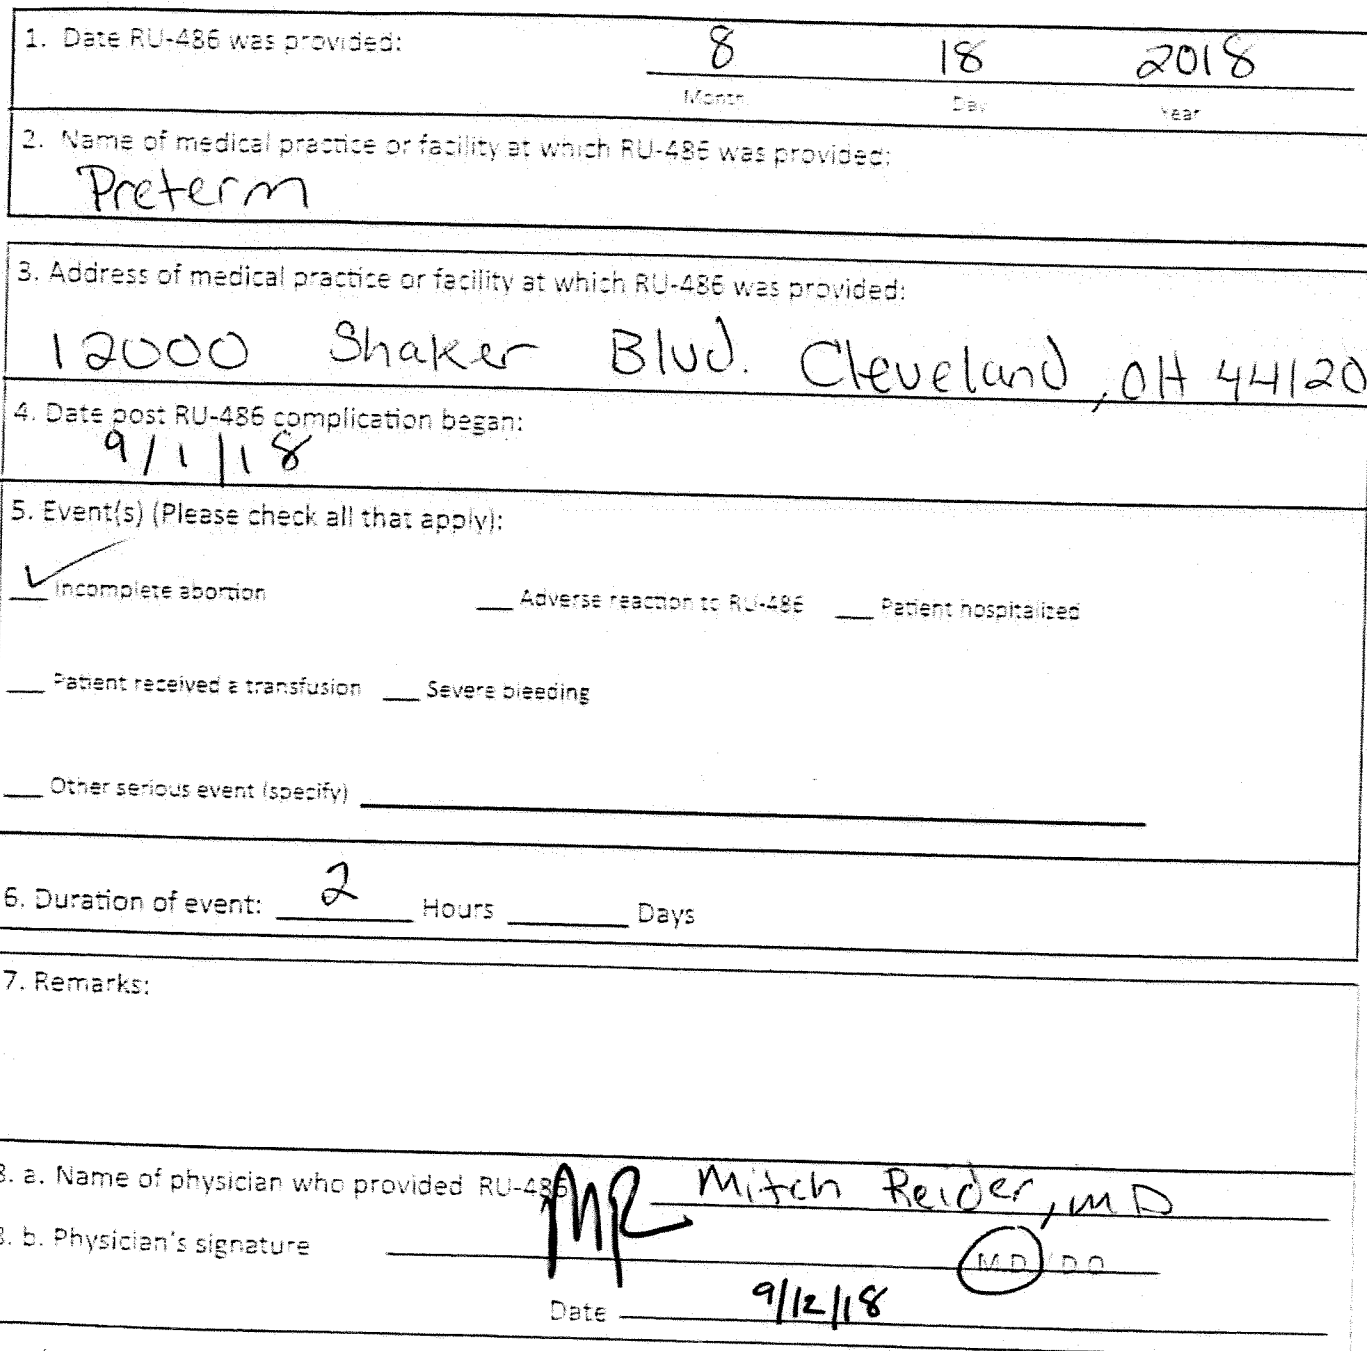 1. Date RU-486 was provided: 8 18 2018
Month Day Year
2. Name of medical practice or facility at which RU-486 was provided:
Preterm
3. Address of medical practice or facility at which RU-486 was provided:
12000 Shaker Blvd. Cleveland, OH 44120
4. Date post RU-486 complication began:
9/1/18
5. Event(s) (Please check all that apply):
✓ Incomplete abortion __ Adverse reaction to RU-486 __ Patient hospitalized
__ Patient received a transfusion __ Severe bleeding
__ Other serious event (specify)
6. Duration of event: 2 Hours ____ Days
7. Remarks:
8. a. Name of physician who provided RU-486 Mitch Reider, MD
8. b. Physician's signature MR M.D./D.O
Date 9/12/18